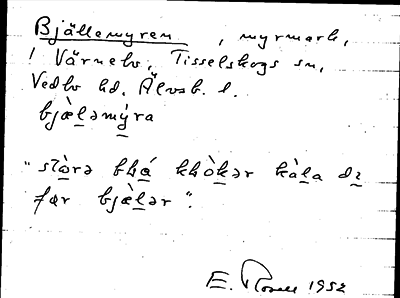 Bjällemyren, myrmark,
i Värnebo, Tisselskogs sn,
Vedbo hd. Älvsb. l.
bjæ̀lǝmýra
"stòrǝ bhá khòkǝr kàla dɪ
før bjæ̀lǝr".
E. Rosell 1952